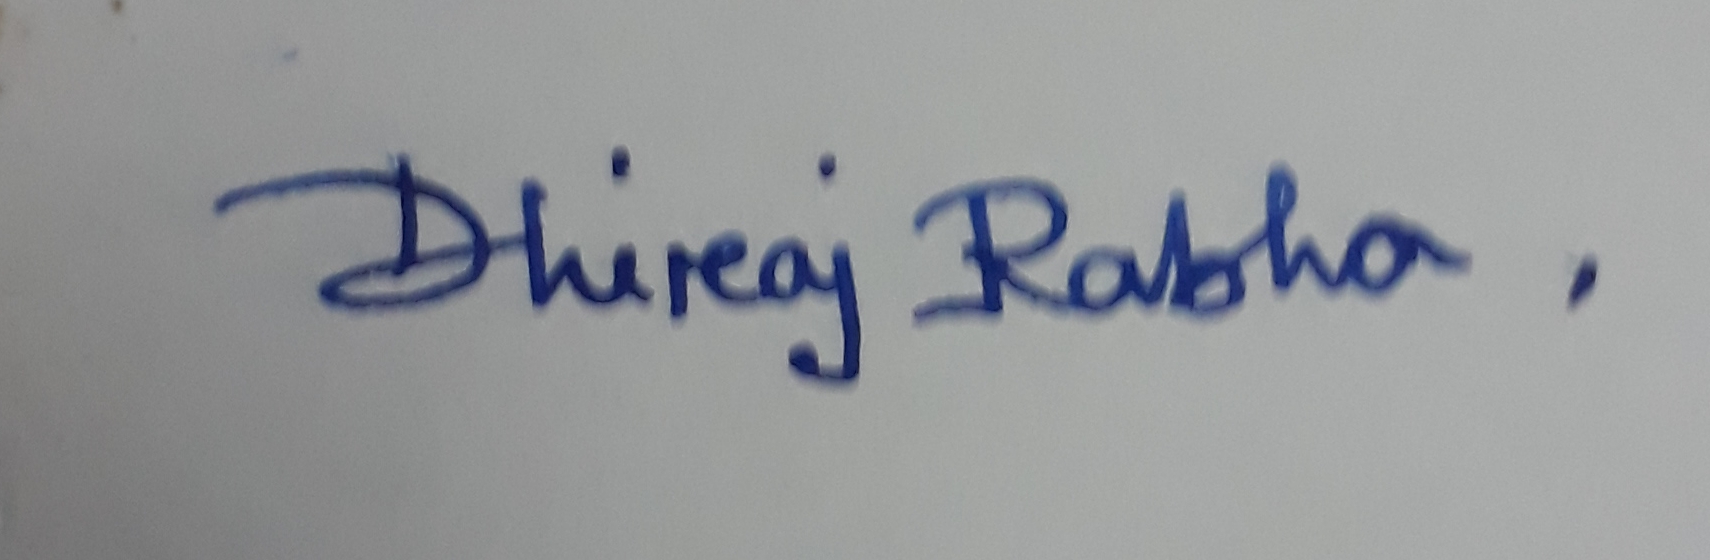 Dhireaj Rabha.